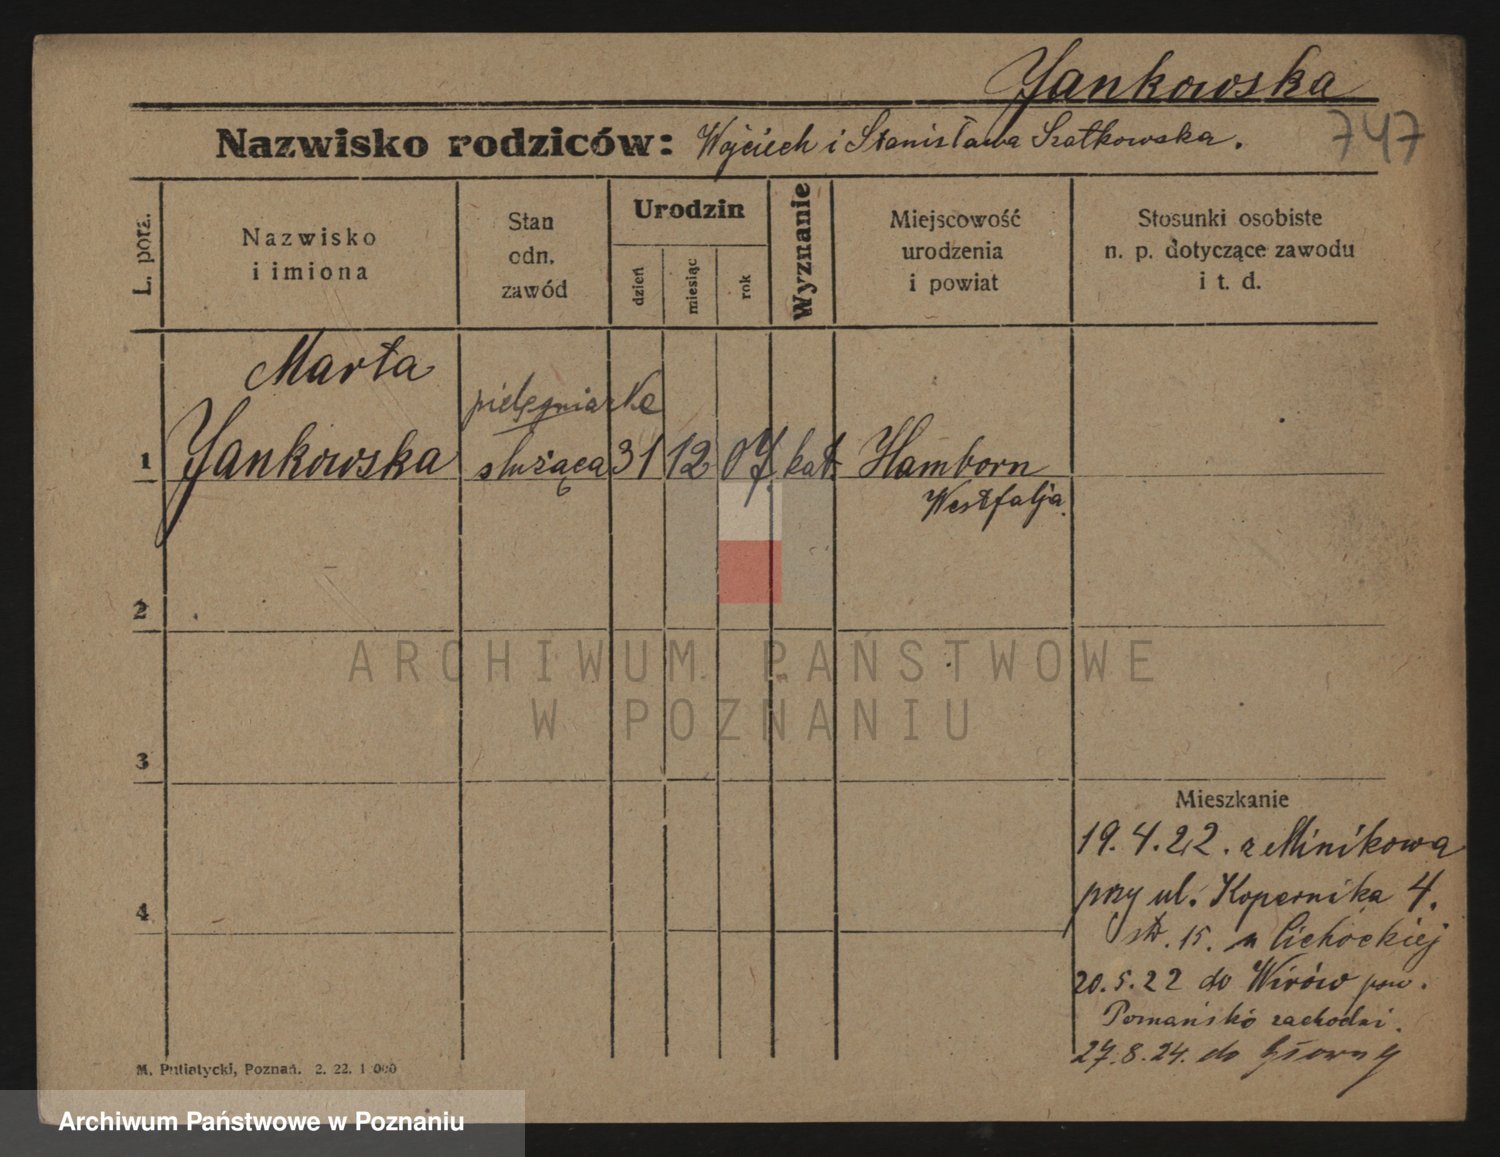 Jankowska
Nazwisko rodziców: Wojciech i Stanisława Szatkowska.
747
L. porz.
Nazwisko
i imiona
Stan
odn.
zawód
Urodzin
dzień
miesiąc
rok
Wyznanie
Miejscowość
urodzenia
i powiat
Stosunki osobiste
n. p. dotyczące zawodu
i t. d.
Marta
pielęgniarka
1 Jankowska służąca 31 12 07. kat. Hamborn
Westfalja.
2
ARCHIWUM PAŃSTWOWE
W POZNANIU
3
Mieszkanie
19.4.22. z Minikowa
przy ul. Kopernika 4.
4
st. 15. u Cichockiej
20.5.22 do Wirów pow.
Poznański zachodni.
27.8.24. do Głowny
M. Putiatycki, Poznań. 2. 22. 1 000
Archiwum Państwowe w Poznaniu